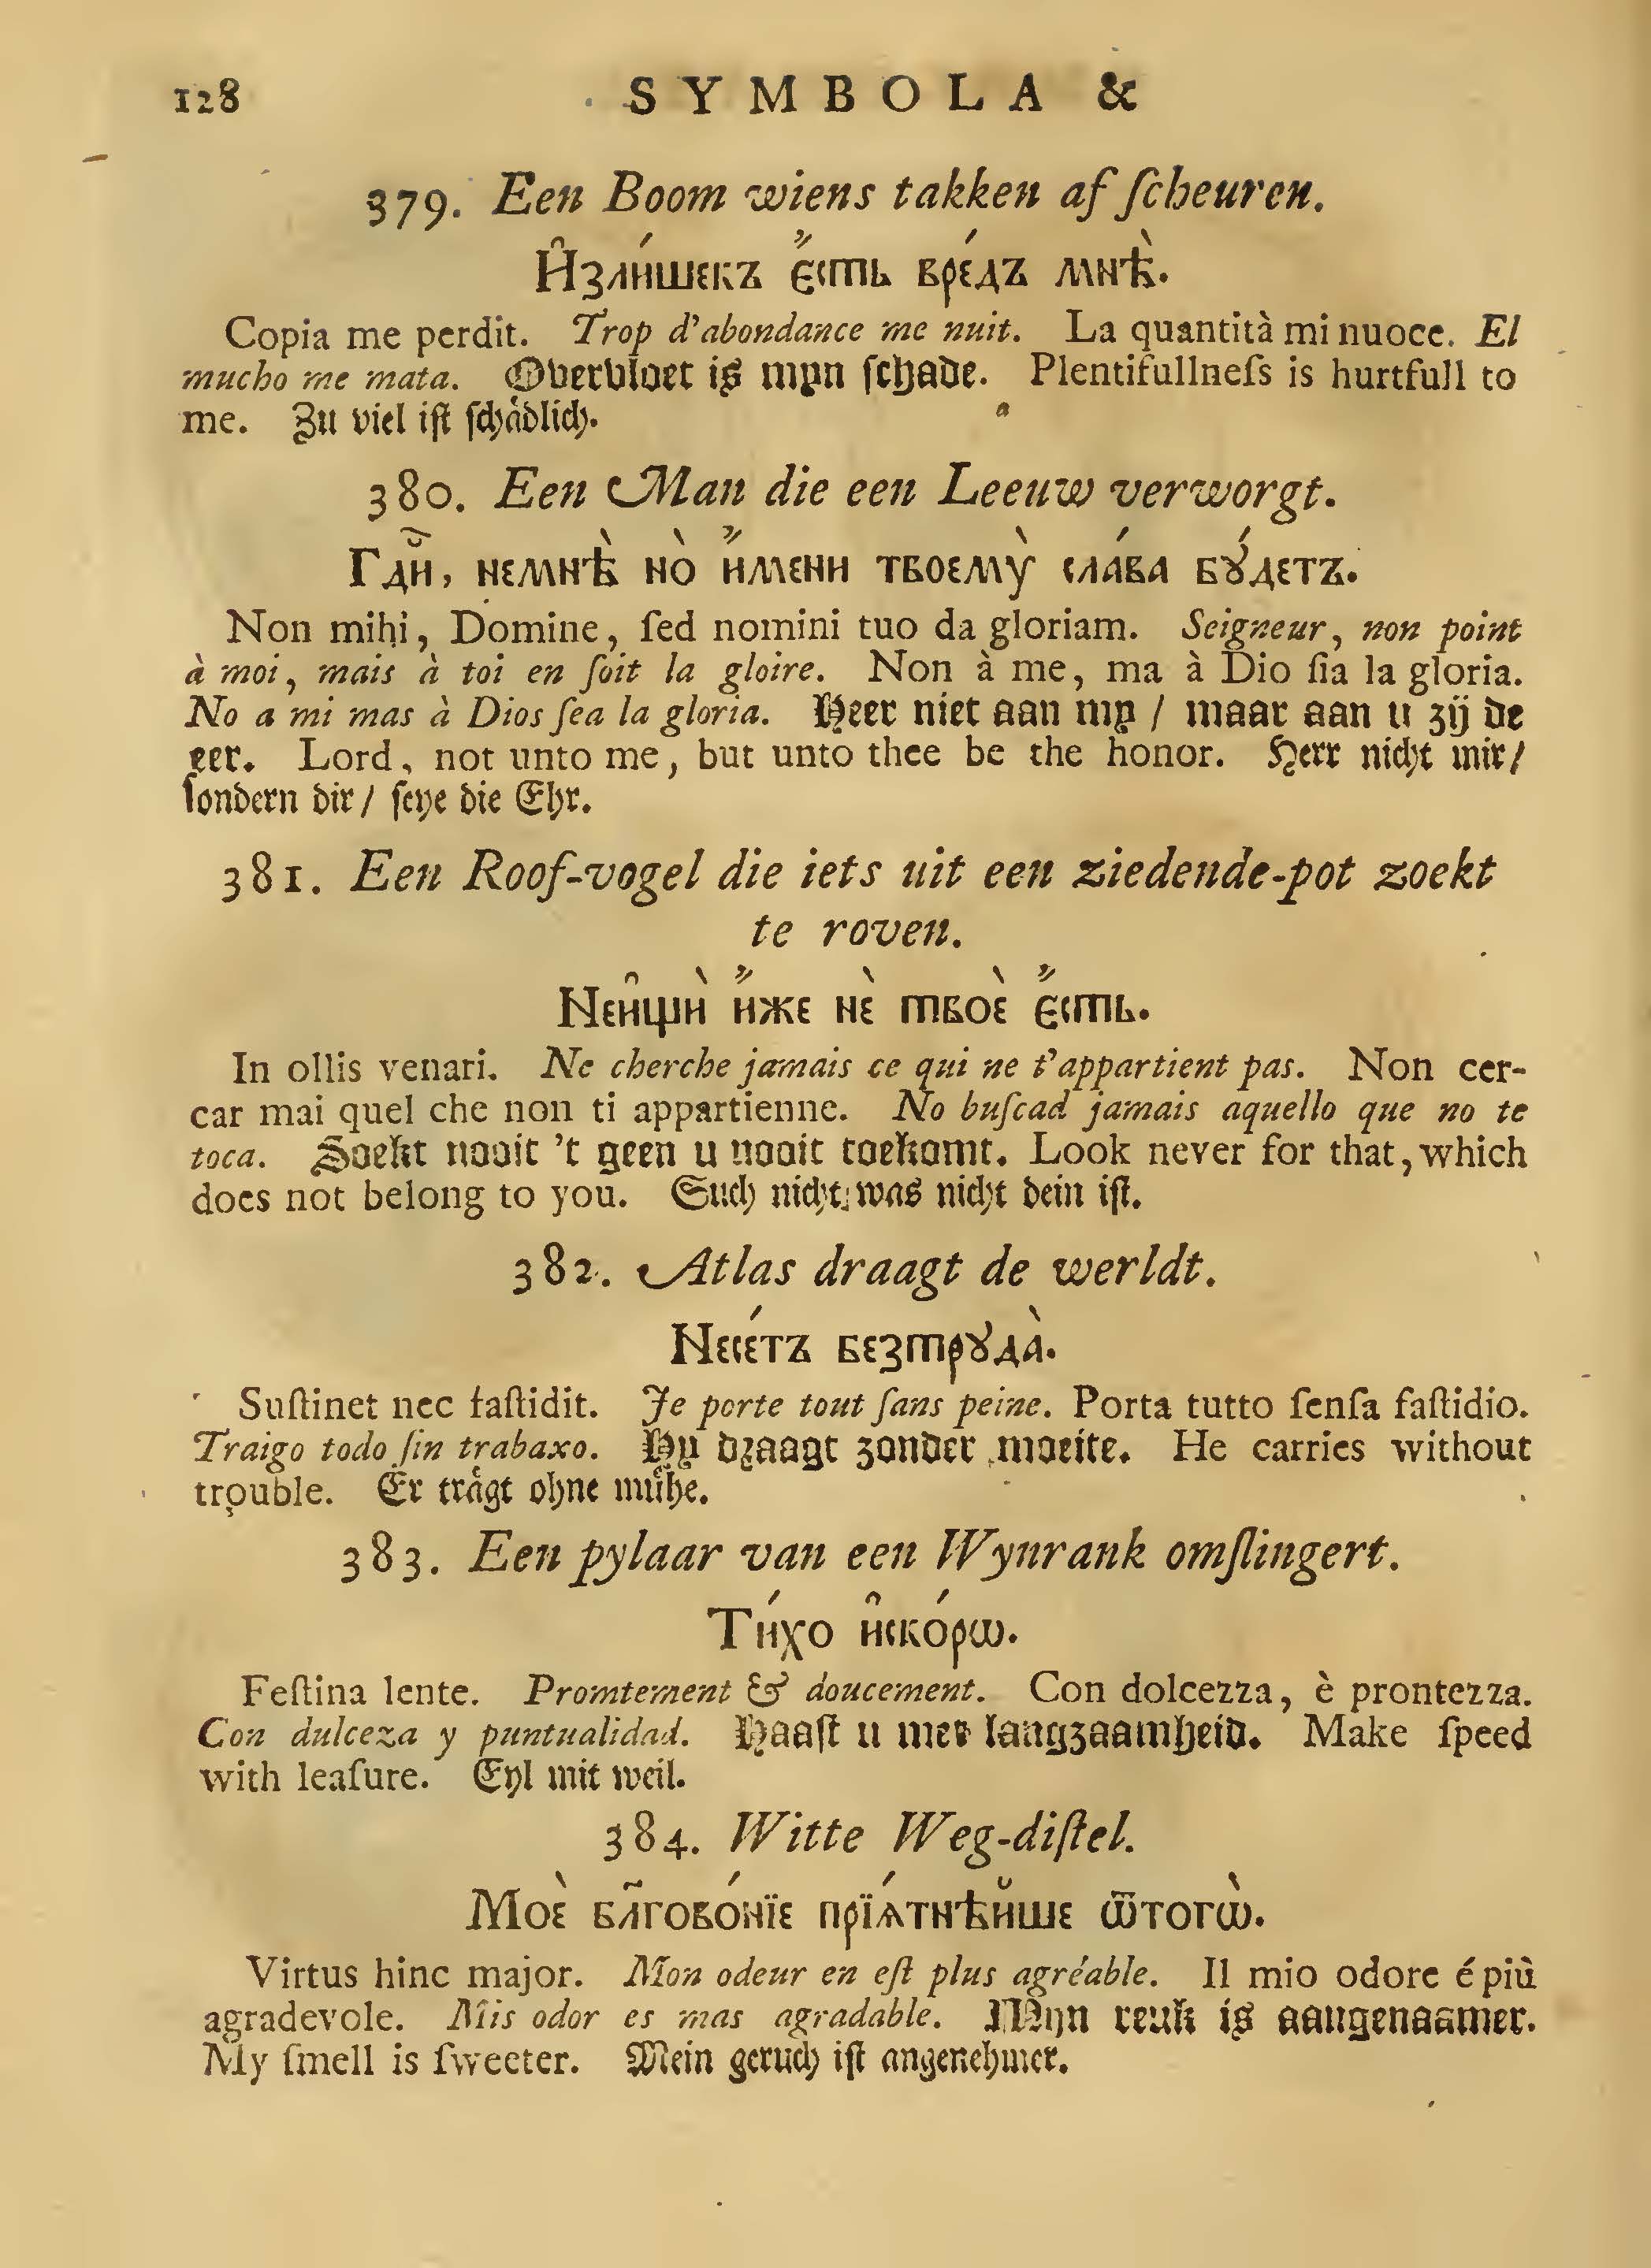 128 SYMBOLA &
379. Een Boom wiens takken af ſcheuren.
И҆зли́шекъ є҆́сть вре́дъ мнѣ̀.
Copia me perdit. Trop d'abondance me nuit. La quantità mi nuoce. El
mucho me mata. Overvloet is myn ſchade. Plentifullneſs is hurtfull to
me. Zu viel iſt ſchådlich.
380. Een Man die een Leeuw verworgt.
Гдⷭ҇и, немнѣ̀ но̀ и҆́мени твоемꙋ̀ сла́ва бꙋ́детъ.
Non mihi, Domine, ſed nomini tuo da gloriam. Seigneur, non point
à moi, mais à toi en ſoit la gloire. Non à me, ma à Dio ſia la gloria.
No a mi mas à Dios ſea la gloria. Heer niet aan my / maar aan u zij de
eer. Lord, not unto me, but unto thee be the honor. Herr nicht mir/
ſondern dir/ ſeye die Ehr.
381. Een Roof-vogel die iets uit een ziedende-pot zoekt
te roven.
Неи҆щѝ и҆́же нѐ твоѐ є҆́сть.
In ollis venari. Ne cherche jamais ce qui ne t'appartient pas. Non cer-
car mai quel che non ti appartienne. No buſcad jamais aquello que no te
toca. Soekt nooit 't geen u nooit toekomt. Look never for that, which
does not belong to you. Such nicht was nicht dein iſt.
382. Atlas draagt de werldt.
Несе́тъ безтрꙋда̀.
Suſtinet nec faſtidit. Je porte tout ſans peine. Porta tutto ſenſa faſtidio.
Traigo todo ſin trabaxo. Hy draagt zonder moeite. He carries without
trouble. Er trågt ohne můhe.
383. Een pylaar van een Wynrank omſlingert.
Ти́хо и҆ско́рѡ.
Feſtina lente. Promtement & doucement. Con dolcezza, è prontezza.
Con dulceza y puntualidad. Haaſt u met langzaamheid. Make ſpeed
with leaſure. Eyl mit weil.
384. Witte Weg-diſtel.
Моѐ бл҃гово́нїе прїѧ́тнѣйше ѿтогѡ̀.
Virtus hinc major. Mon odeur en eſt plus agréable. Il mio odore é più
agradevole. Mis odor es mas agradable. Mijn reuk is aangenaamer.
My ſmell is ſweeter. Mein geruch iſt angenehmer.